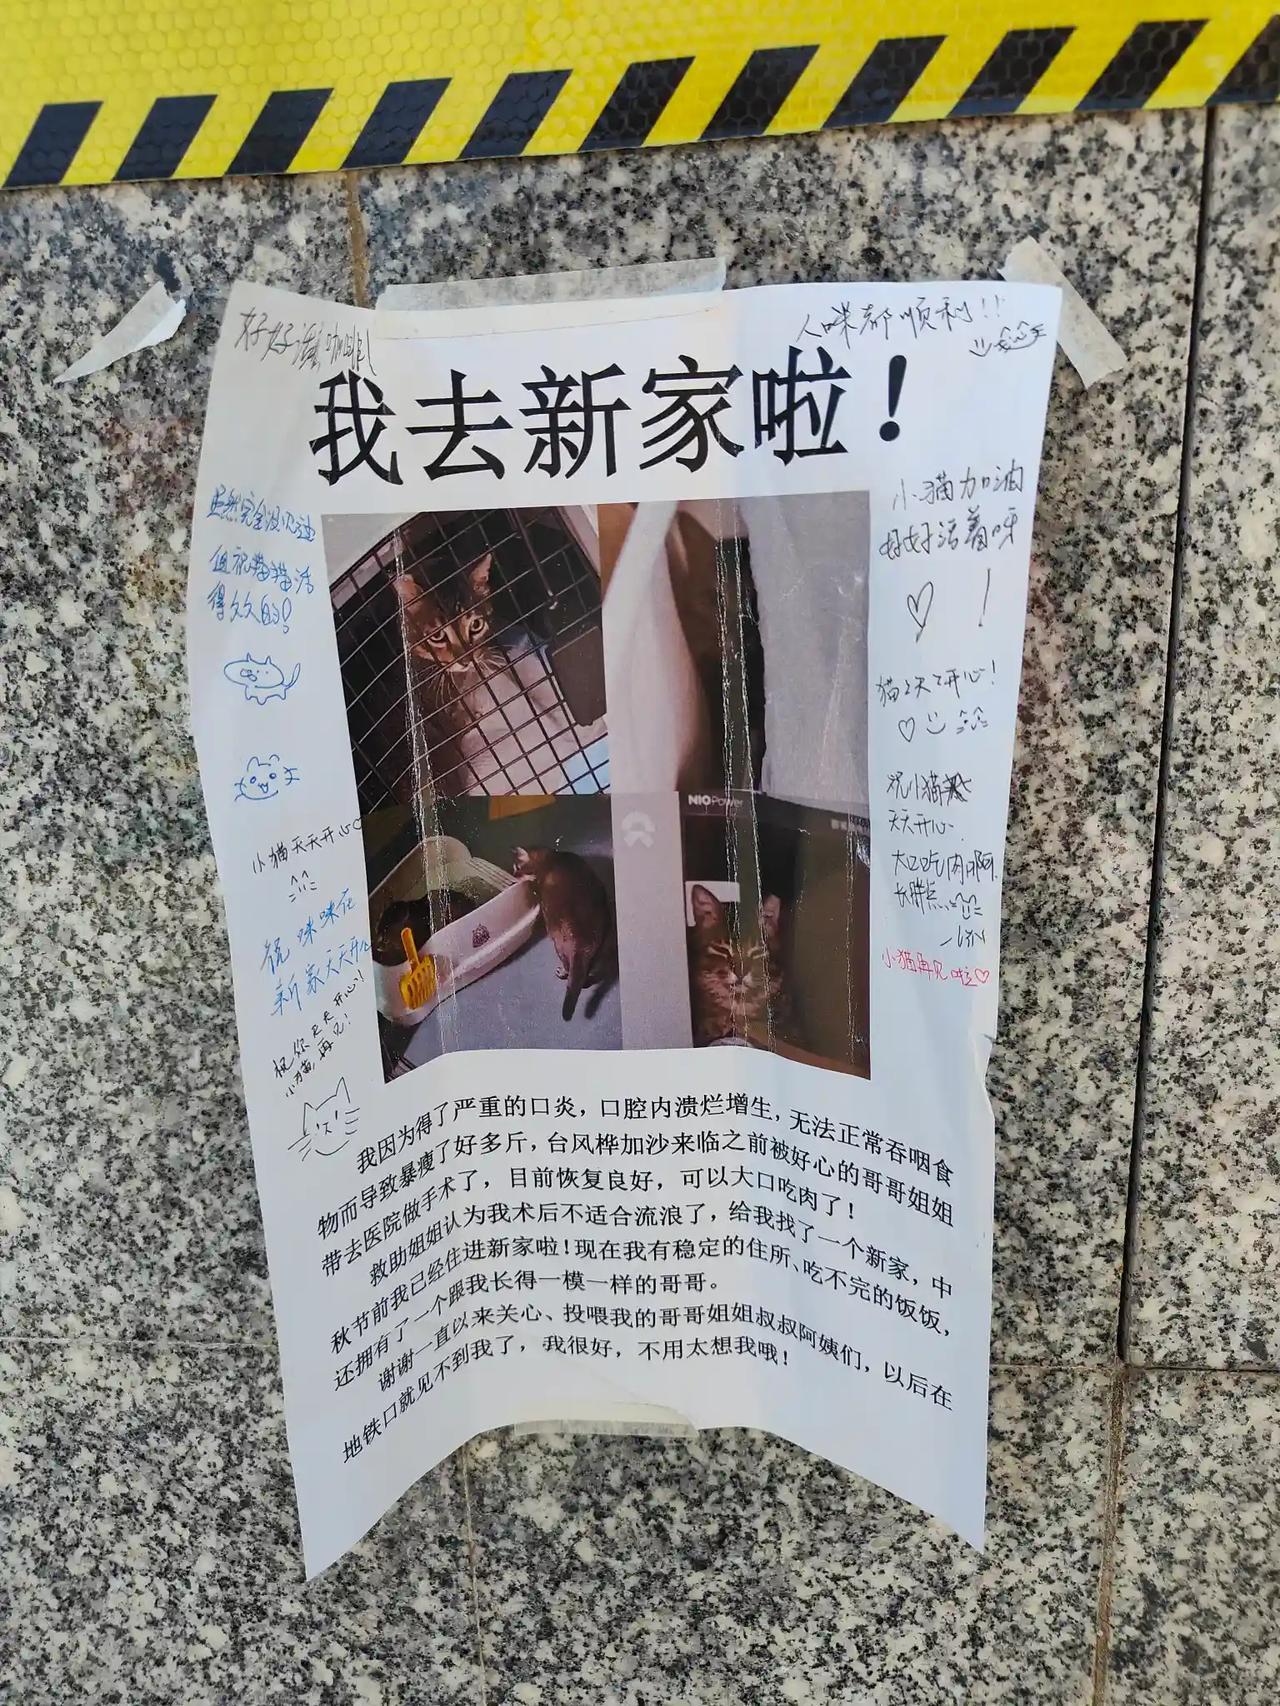 人咪都顺利!!
我去新家啦！
虽然完全没见过
但祝猫猫活
得久久的!
小猫加油
好好活着呀
!
猫天天开心!
NIO Power
祝小猫
天天开心
大口吃肉啊
长胖点
小猫天天开心
祝咪咪在
新家天天开心
祝你天天开心!
小猫,再见!
小猫再见啦
我因为得了严重的口炎，口腔内溃烂增生，无法正常吞咽食
物而导致暴瘦了好多斤，台风桦加沙来临之前被好心的哥哥姐姐
带去医院做手术了，目前恢复良好，可以大口吃肉了！
救助姐姐认为我术后不适合流浪了，给我找了一个新家，中
秋节前我已经住进新家啦！现在我有稳定的住所、吃不完的饭饭，
还拥有了一个跟我长得一模一样的哥哥。
谢谢一直以来关心、投喂我的哥哥姐姐叔叔阿姨们，以后在
地铁口就见不到我了，我很好，不用太想我哦！